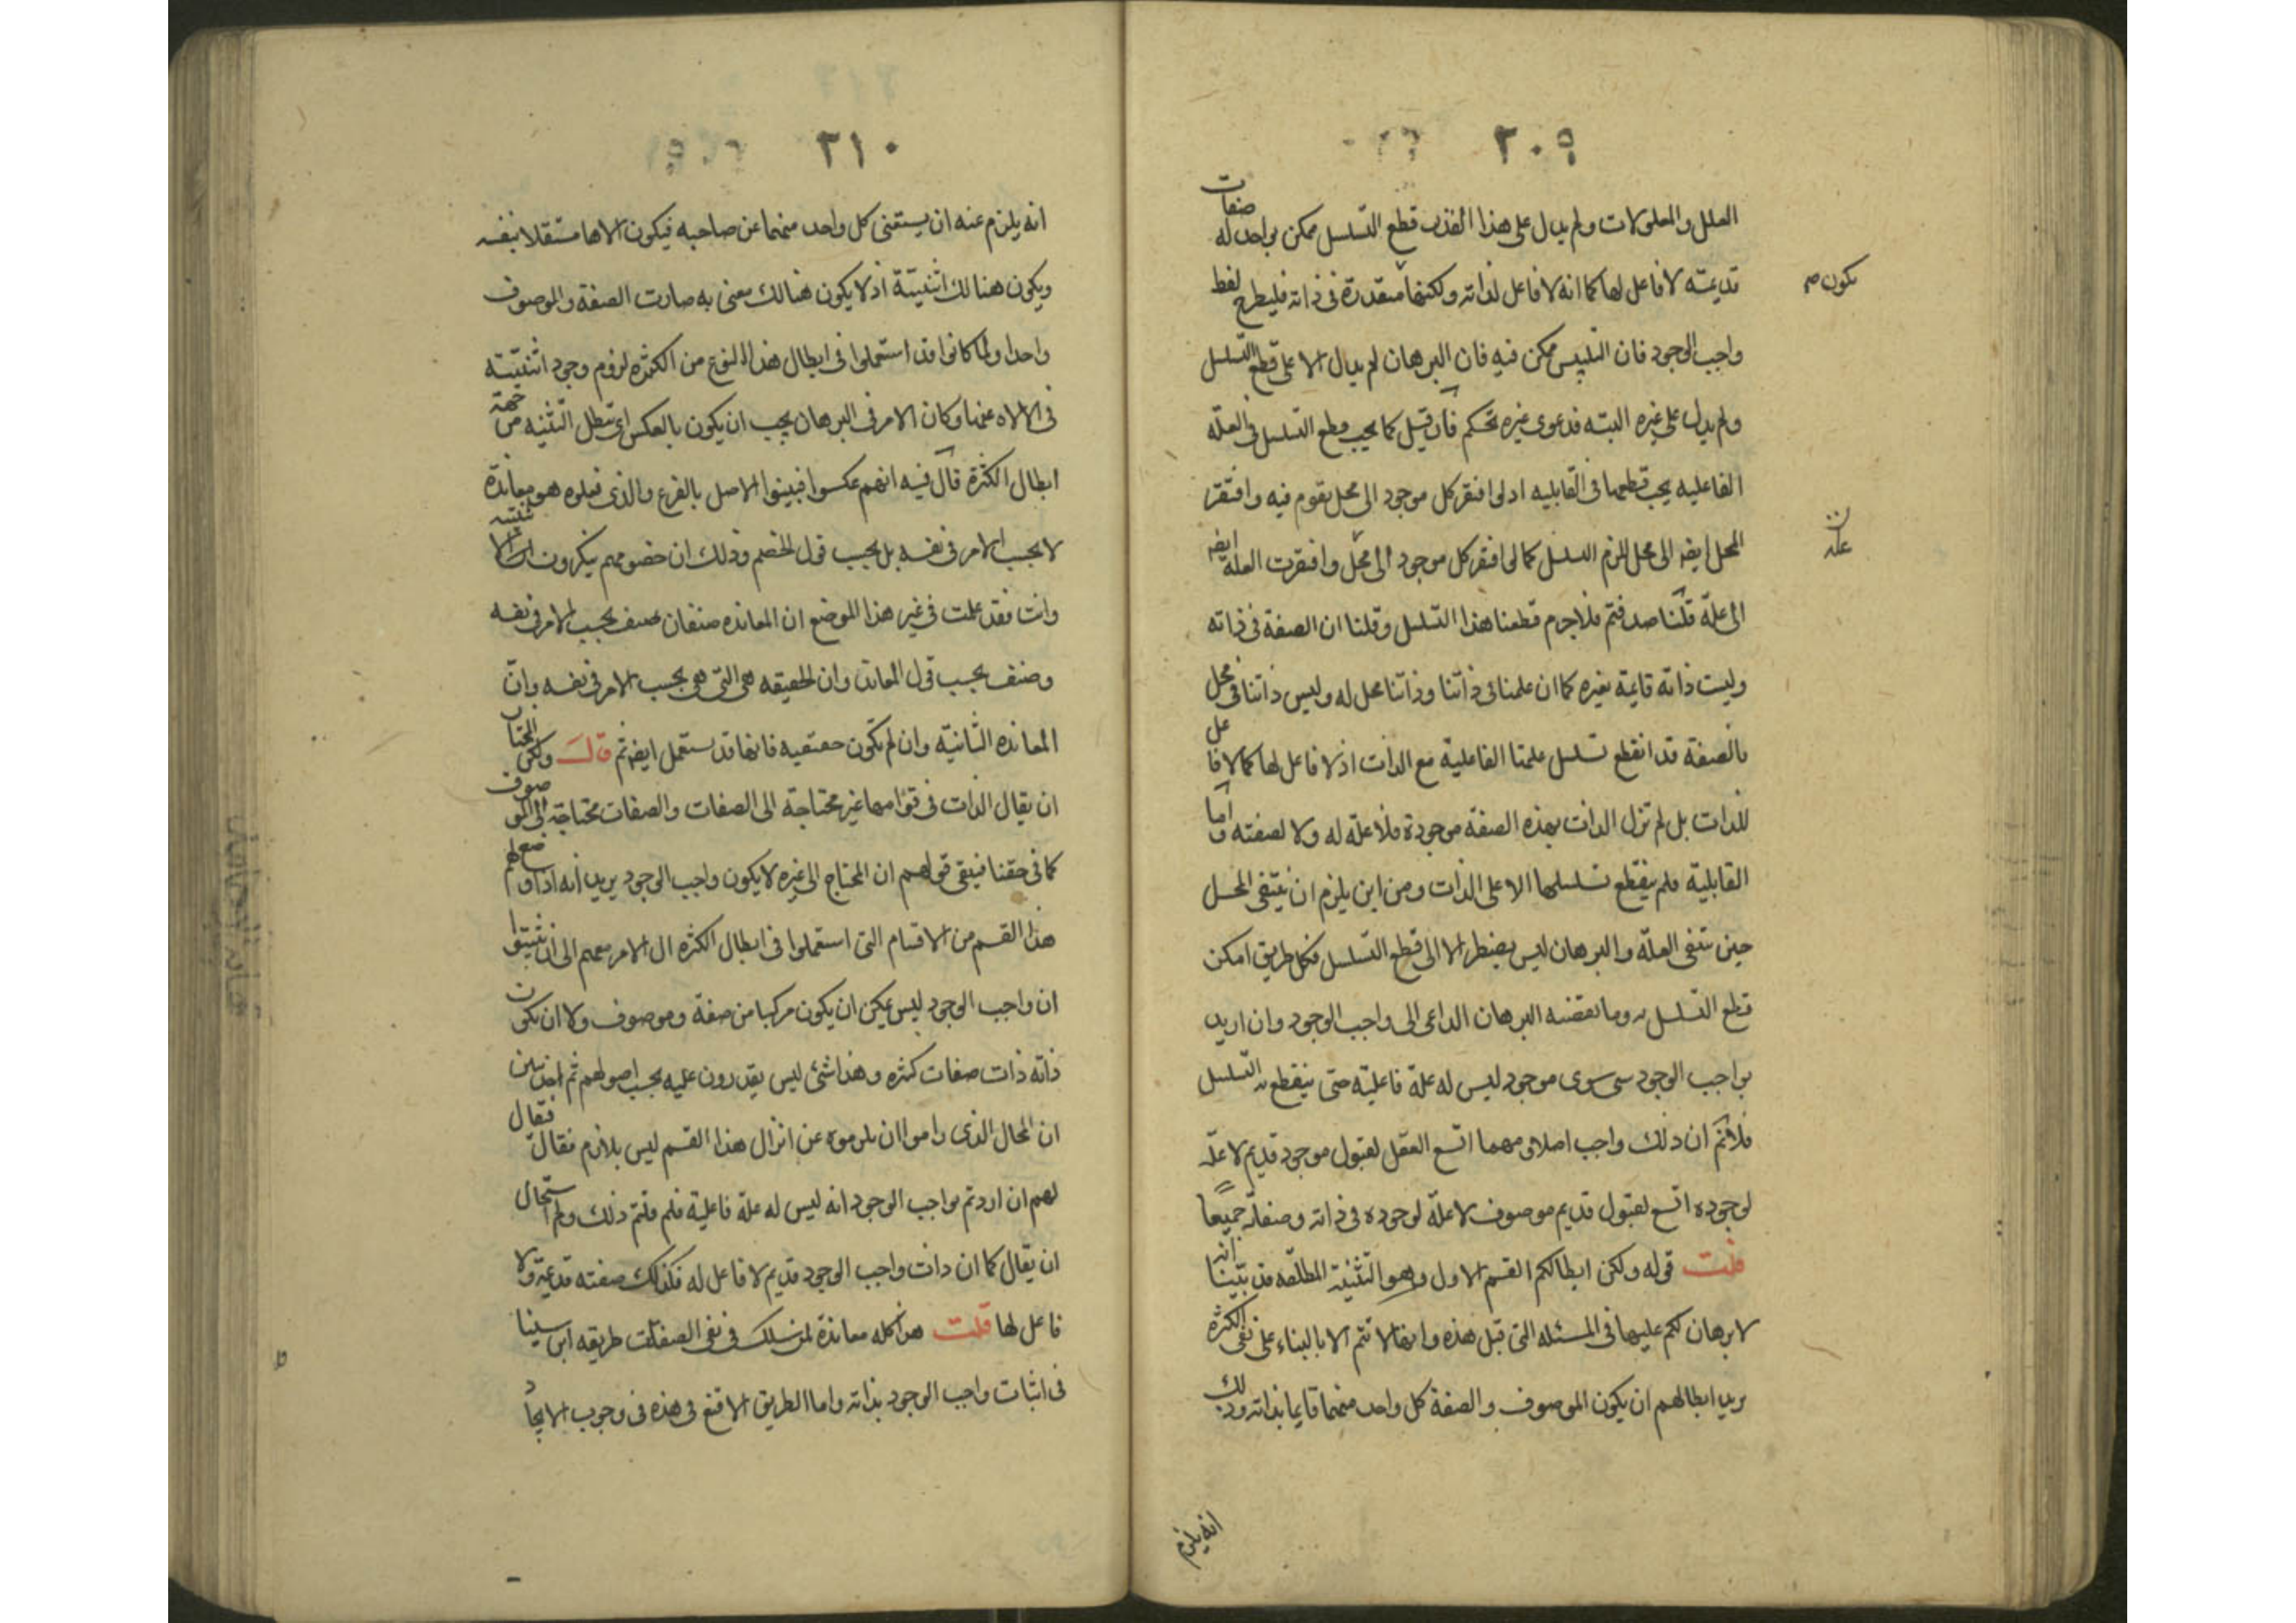 ٢٠٩
العلل والمعلولات ولم يدل على هذا القدر قطع التسلسل ممكن بواحد له صفات
قديمة لا فاعل لها كما انه لا فاعل لذاته ولكنها متقررة فى ذاته فليطرح لفظ
يكون
واجب الوجود فان التلبيس ممكن فيه فان البرهان لم يدل الا على قطع التسلسل
ولم يدل على غيره البته فدعوى غيره تحكم فان قيل كما يجب قطع التسلسل فى العلة
الفاعليه يجب قطعها فى القابليه اذ لو افتقر كل موجود الى محل يقوم فيه وافتقر
المحل ايضا الى محل للزم التسلسل كما لو افتقر كل موجود الى محل وافتقرت العلة ايضا
علة
الى علة قلنا صدقتم فلا جرم قطعنا هذا التسلسل وقلنا ان الصفة فى ذاته
وليست ذاته قايمة بغيره كما ان علمنا فى ذاتنا وذاتنا محل له وليس ذاتنا فى محل
فالصفة قد انقطع تسلسل علتها الفاعلية مع الذات اذ لا فاعل لها كما لا فاعل
للذات بل لم تزل الذات بهذه الصفة موجودة فلا علة له ولا لصفته واما
القابلية فلم ينقطع تسلسلها الا على الذات ومن اين يلزم ان ينتفى المحل
حين تنتفى العلة والبرهان ليس يضطر الا الى قطع التسلسل فكل طريق امكن
قطع التسلسل به وما بقضية البرهان الداعى الى واجب الوجود وان اريد
بواجب الوجود شى سوى موجود ليس له علة فاعلية حتى ينقطع به التسلسل
فلا نم ان ذلك واجب اصلا ومهما اتسع العقل لقبول موجود قديم لا علة
لوجوده اتسع لقبول قديم موصوف لا علة لوجوده فى ذاته وصفاته جميعا
قلت قوله ولكن ابطالكم القسم الاول وهو التثنية المطلقه قد بينا انه
لا برهان لكم عليها فى المسئله التى قبل هذه وانها لا تتم الا بالبناء على نفى الكثرة
يريد ابطالهم ان يكون الموصوف والصفة كل واحد منهما قايما بذاته وذلك
انه يلزم
٢١٠
انه يلزم عنه ان يستغنى كل واحد منهما عن صاحبه فيكون الاها مستقلا بنفسه
ويكون هنالك اثنينية اذ لا يكون هنالك معنى به صارت الصفة والموصوف
واحدا ولما كانوا قد استعملوا فى ابطال هذا النوع من الكثره لزوم وجود اثنينية
فى الالاه عنها وكان الامر فى البرهان يجب ان يكون بالعكس اى تبطل التثنيه من جهة
ابطال الكثرة قال فيه انهم عكسوا فبينوا الاصل بالفرع والذى فعلوه هو معاندة
لا بحسب الامر فى نفسه بل بحسب قول الخصم وذلك ان خصومهم ينكرون
وانت فقد علمت فى غير هذا الموضع ان المعانده صنفان صنف بحسب الامر فى نفسه
وصنف بحسب قول المعاند وان الحقيقه هى التى هى بحسب الامر فى نفسه وان
المعانده الثانية وان لم تكون حقيقيه فانها قد يستعمل ايضا ثم قال ولكن المختار
ان يقال الذات فى قوامها غير محتاجة الى الصفات والصفات محتاجة الى الموصوف
كما فى حقنا فيبقى قولهم ان المحتاج الى غيره لا يكون واجب الوجود يريد انه اذا وضع لهم
هذا القسم من الاقسام التى استعملوا فى ابطال الكثره ال الامر معهم الى ان يثبتوا
ان واجب الوجود ليس يمكن ان يكون مركبا من صفة وموصوف ولا ان يكون
ذاته ذات صفات كثره وهذا شئ ليس يقدرون عليه بحسب اصولهم ثم اخذ يبين
ان المحال الذى راموا ان يلزموه عن انزال هذا القسم ليس بلازم فقال
لهم ان اردتم بواجب الوجود انه ليس له علة فاعلية فلم قلتم ذلك ولم استحال
ان يقال كما ان ذات واجب الوجود قديم لا فاعل له فكذلك صفته قديمة ولا
فاعل لها قلت هذا كله معاندة لمن سلك فى نفى الصفات طريقه ابن سينا
فى اثبات واجب الوجود بذاته واما الطريق الاقنع فى هذه فى وجوب الايجاد